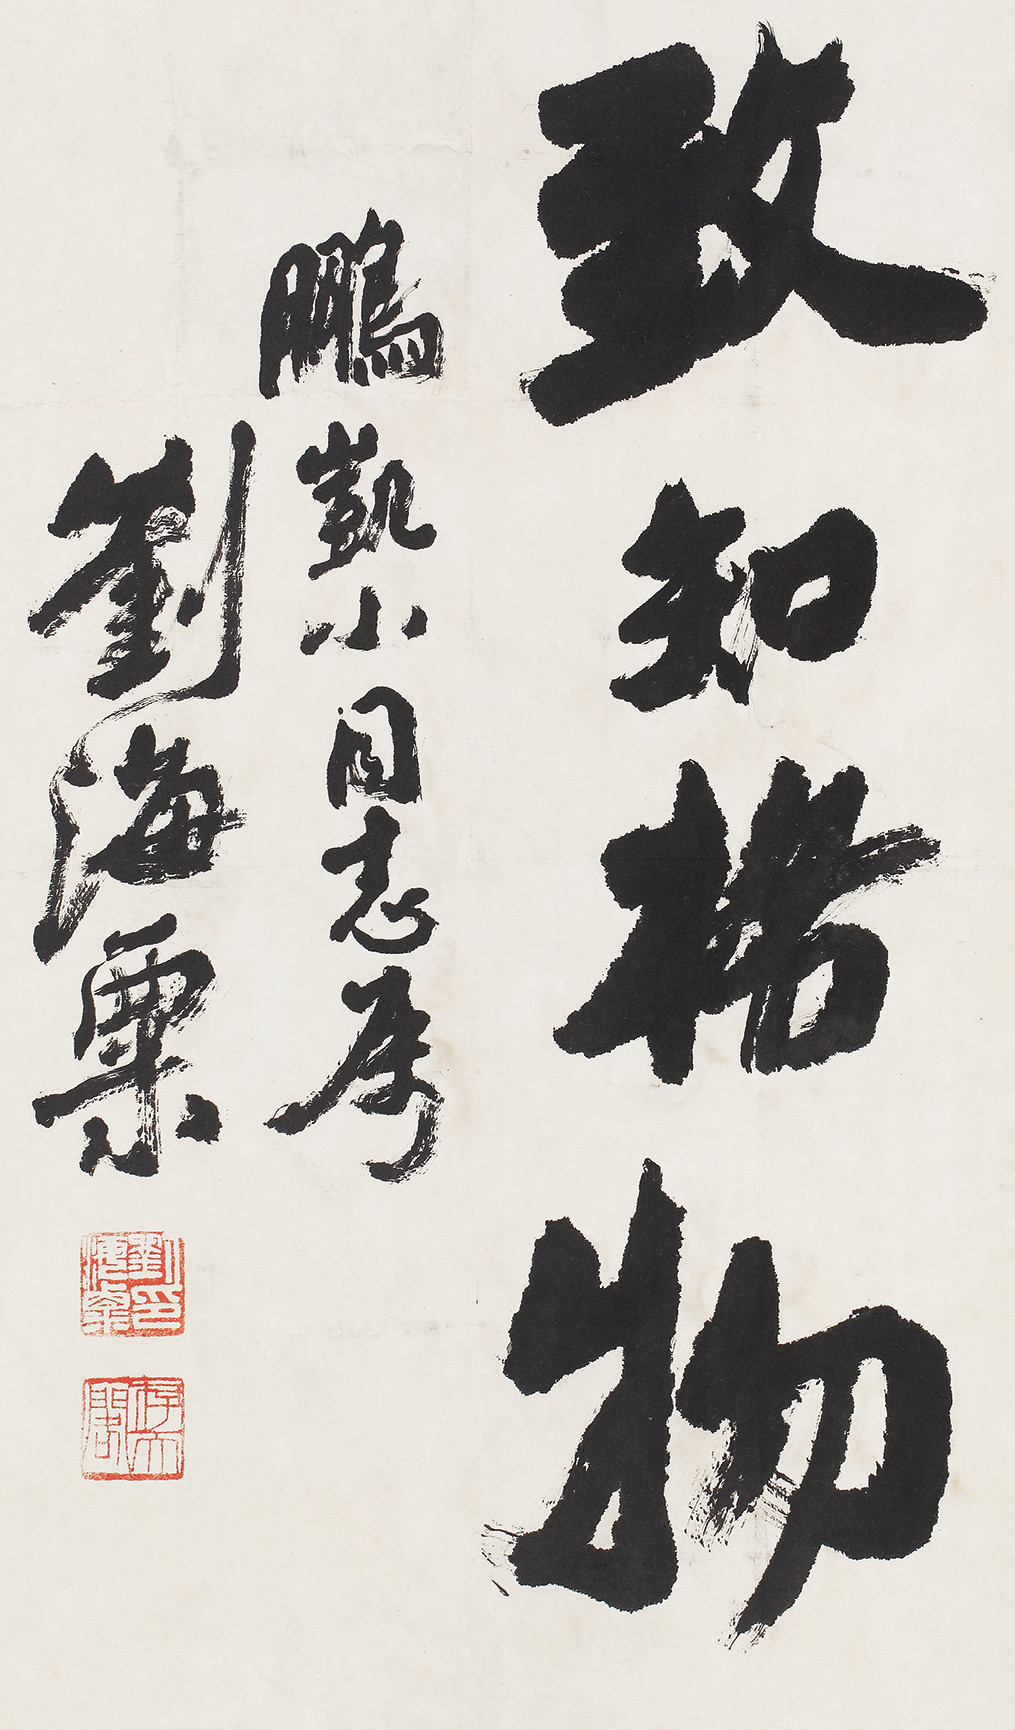 致知格物
鵬凱小同志屬
劉海粟
劉海粟印
存天閣